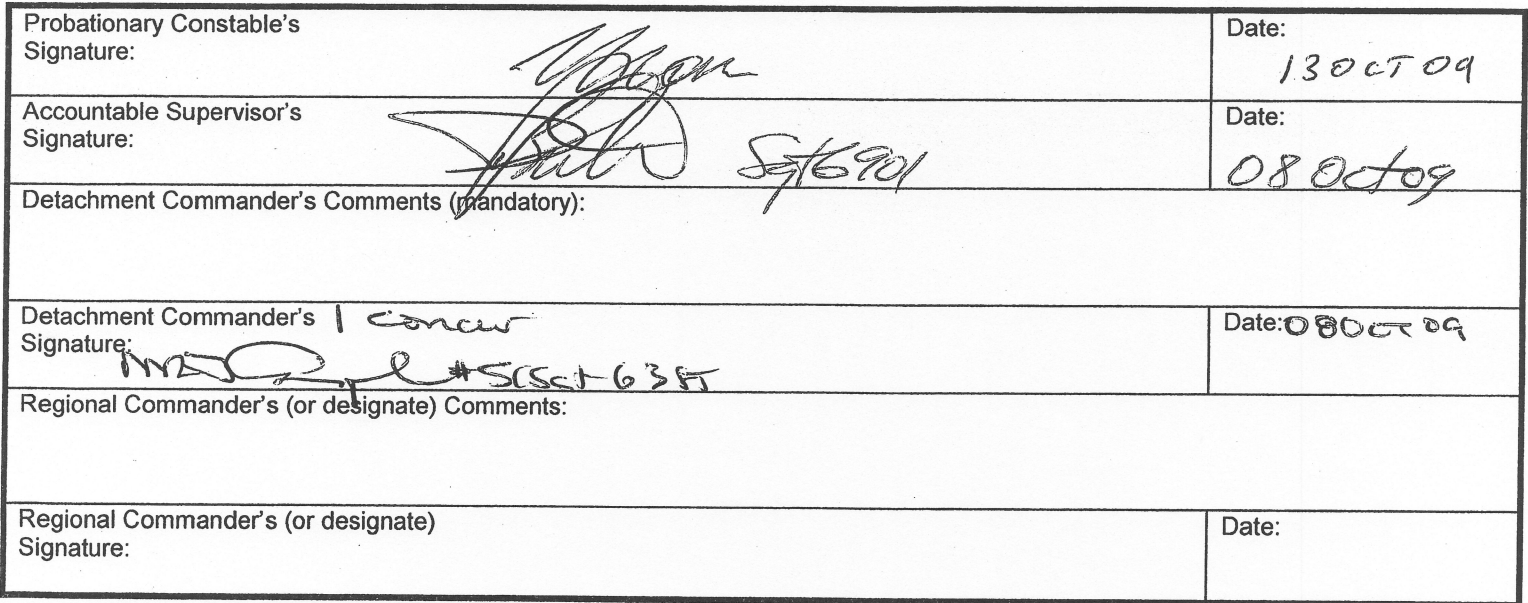 Probationary Constable's
Signature:
Date:
13 OCT 09
Accountable Supervisor's
Signature:
Sgt 6901
Date:
08 Oct 09
Detachment Commander's Comments (mandatory):
Detachment Commander's I concur
Signature:
Date: 08 OCT 09
Regional Commander's (or designate) Comments:
Regional Commander's (or designate)
Signature:
Date: